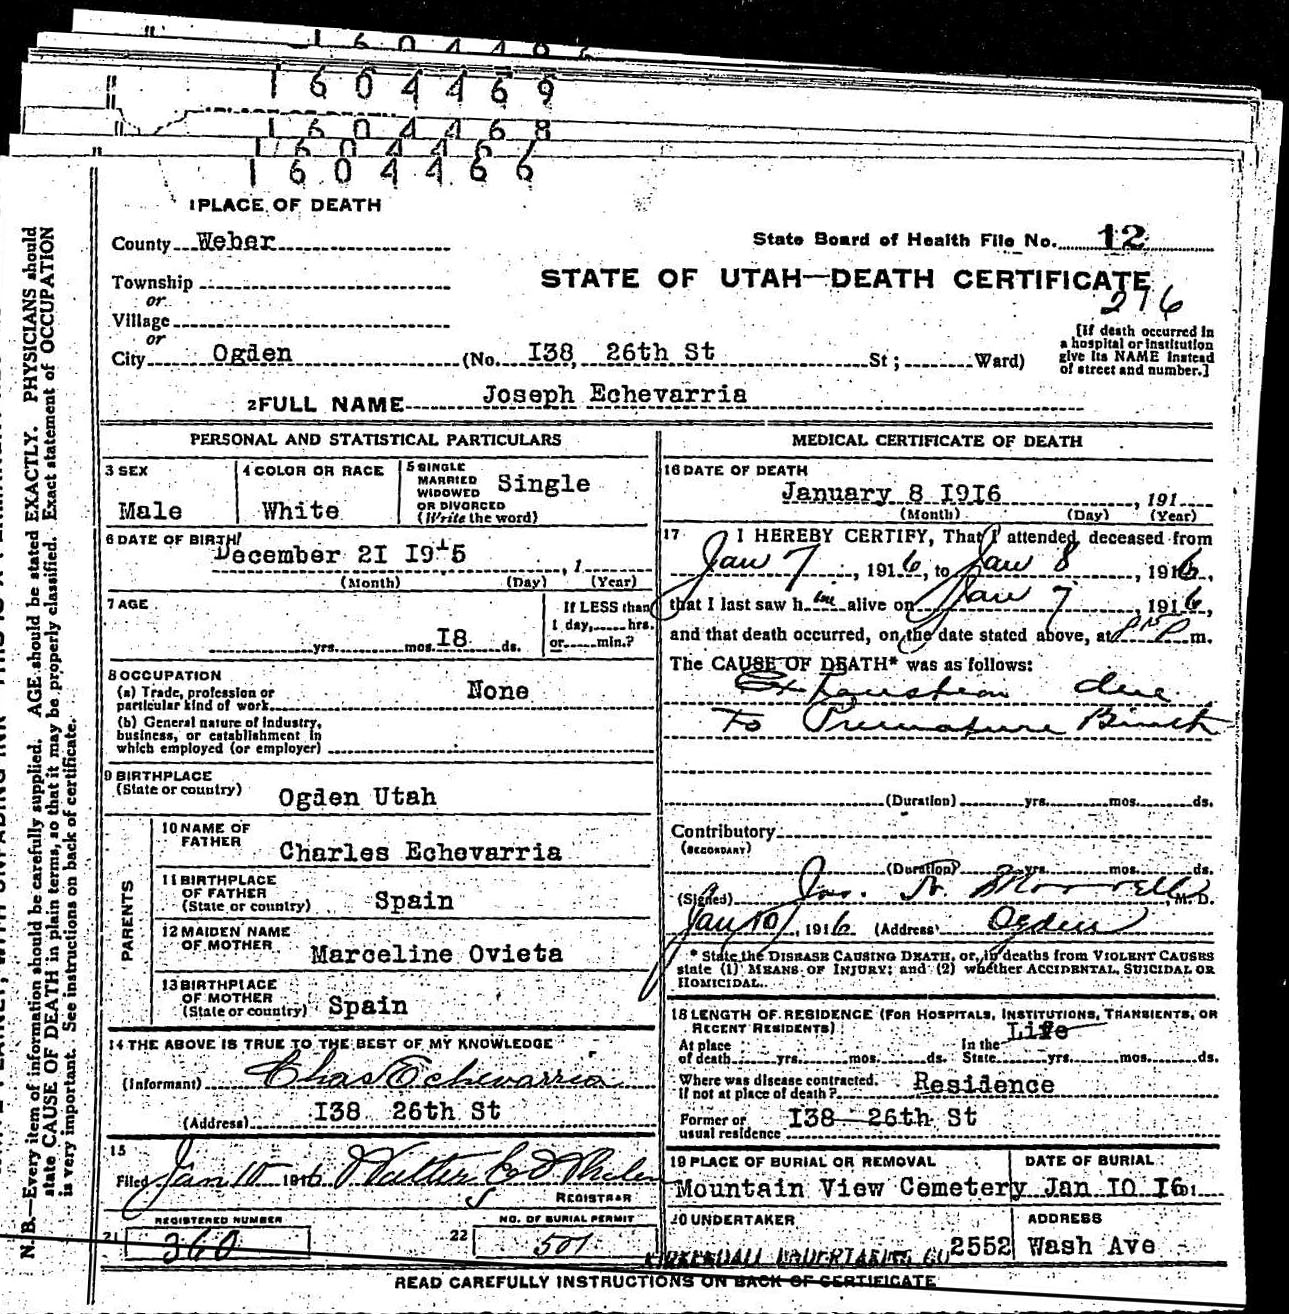 1604469
1604468
1604466
1 PLACE OF DEATH
County Weber
State Board of Health File No. 12
Township
or
Village
or
STATE OF UTAH—DEATH CERTIFICATE
276
City Ogden (No. I38, 26th St St; Ward)
[If death occurred in
a hospital or institution
give its NAME instead
of street and number.]
2 FULL NAME Joseph Echevarria
PERSONAL AND STATISTICAL PARTICULARS
3 SEX
Male
4 COLOR OR RACE
White
5 SINGLE
MARRIED
WIDOWED
OR DIVORCED
(Write the word)
Single
6 DATE OF BIRTH
December 2I I9I5, 1
(Month) (Day) (Year)
7 AGE
yrs. mos. I8 ds.
If LESS than
1 day, hrs.
or min.?
8 OCCUPATION
(a) Trade, profession or
particular kind of work None
(b) General nature of industry,
business, or establishment in
which employed (or employer)
9 BIRTHPLACE
(State or country) Ogden Utah
PARENTS
10 NAME OF
FATHER
Charles Echevarria
11 BIRTHPLACE
OF FATHER
(State or country) Spain
12 MAIDEN NAME
OF MOTHER
Marceline Ovieta
13 BIRTHPLACE
OF MOTHER
(State or country) Spain
14 THE ABOVE IS TRUE TO THE BEST OF MY KNOWLEDGE
(Informant) Chas Echevarria
(Address) I38 26th St
15
Filed Jan 10 1916 Walter
REGISTRAR
REGISTERED NUMBER
21 360
NO. OF BURIAL PERMIT
22 501
MEDICAL CERTIFICATE OF DEATH
16 DATE OF DEATH
January 8 I9I6, 191
(Month) (Day) (Year)
17 I HEREBY CERTIFY, That I attended deceased from
Jan 7, 1916, to Jan 8, 1916,
that I last saw him alive on Jan 7, 1916,
and that death occurred, on the date stated above, at P m.
The CAUSE OF DEATH* was as follows:
Exhaustion due
To Premature Birth
(Duration) yrs. mos. ds.
Contributory
(SECONDARY)
(Duration) yrs. mos. ds.
(Signed) Jas. N. Morrell M. D.
Jan 10, 1916 (Address) Ogden
* State the DISEASE CAUSING DEATH, or, in deaths from VIOLENT CAUSES
state (1) MEANS OF INJURY; and (2) whether ACCIDENTAL, SUICIDAL OR
HOMICIDAL.
18 LENGTH OF RESIDENCE (FOR HOSPITALS, INSTITUTIONS, TRANSIENTS, OR
RECENT RESIDENTS)
Life
At place In the
of death yrs. mos. ds. State yrs. mos. ds.
Where was disease contracted.
If not at place of death? Residence
Former or
usual residence I38 26th St
19 PLACE OF BURIAL OR REMOVAL
Mountain View Cemetery
DATE OF BURIAL
Jan IO I6
20 UNDERTAKER
KIRKENDALL UNDERTAKING CO
ADDRESS
2552 Wash Ave
READ CAREFULLY INSTRUCTIONS ON BACK OF CERTIFICATE
N. B.—Every item of information should be carefully supplied. AGE should be stated EXACTLY. PHYSICIANS should
state CAUSE OF DEATH in plain terms, so that it may be properly classified. Exact statement of OCCUPATION
is very important. See instructions on back of certificate.